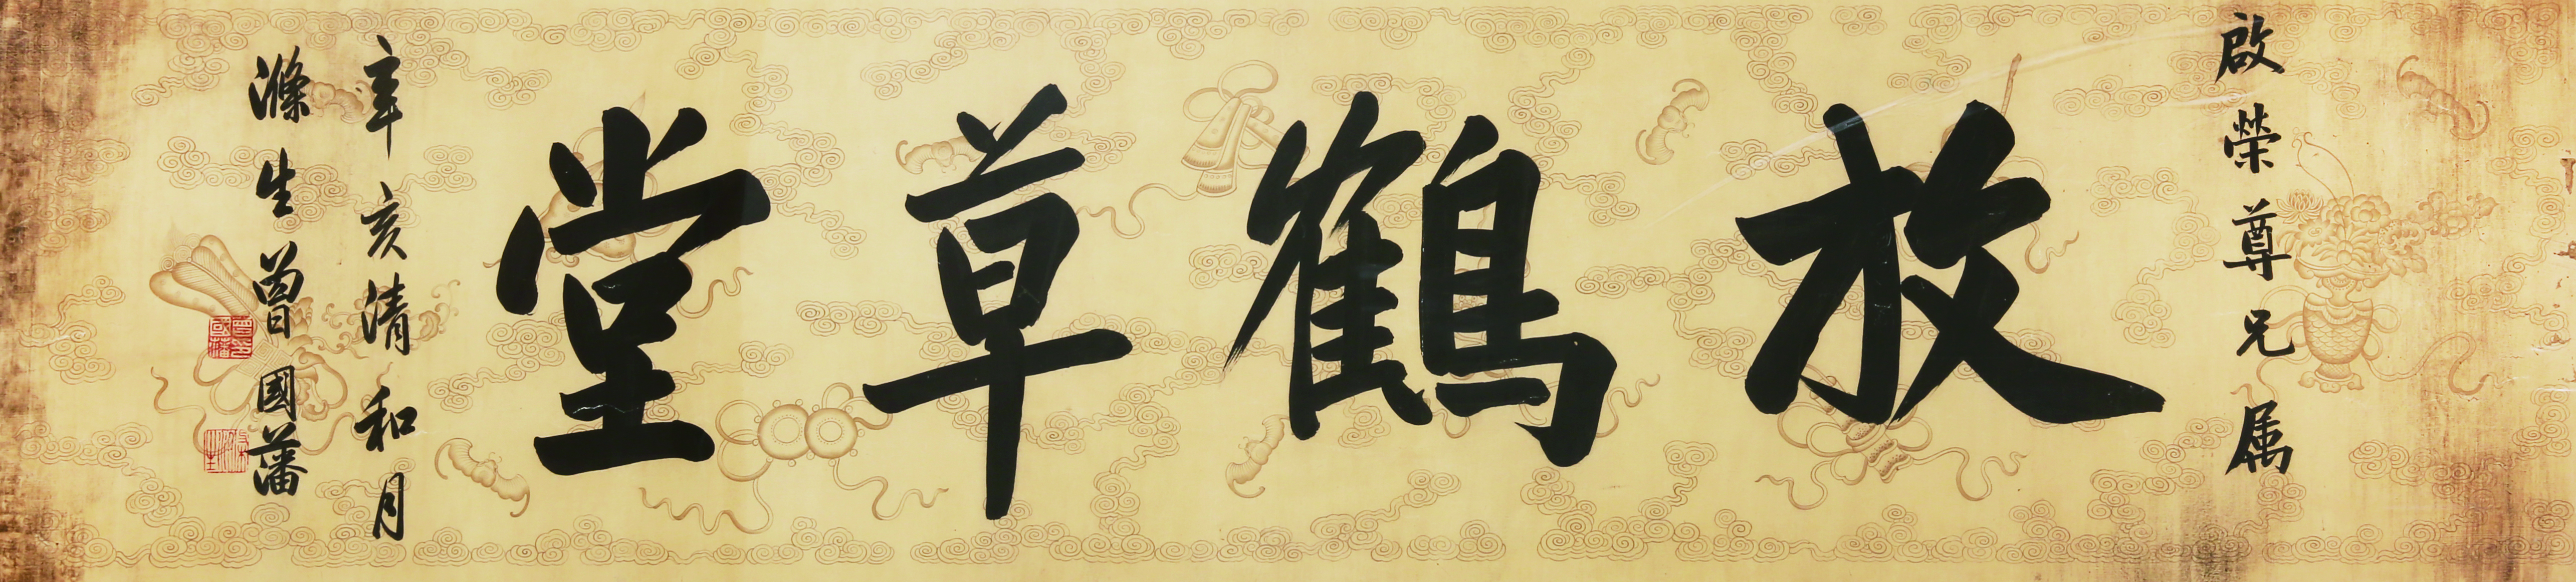 啟榮尊兄属
放鶴草堂
辛亥清和月
滌生曾國藩